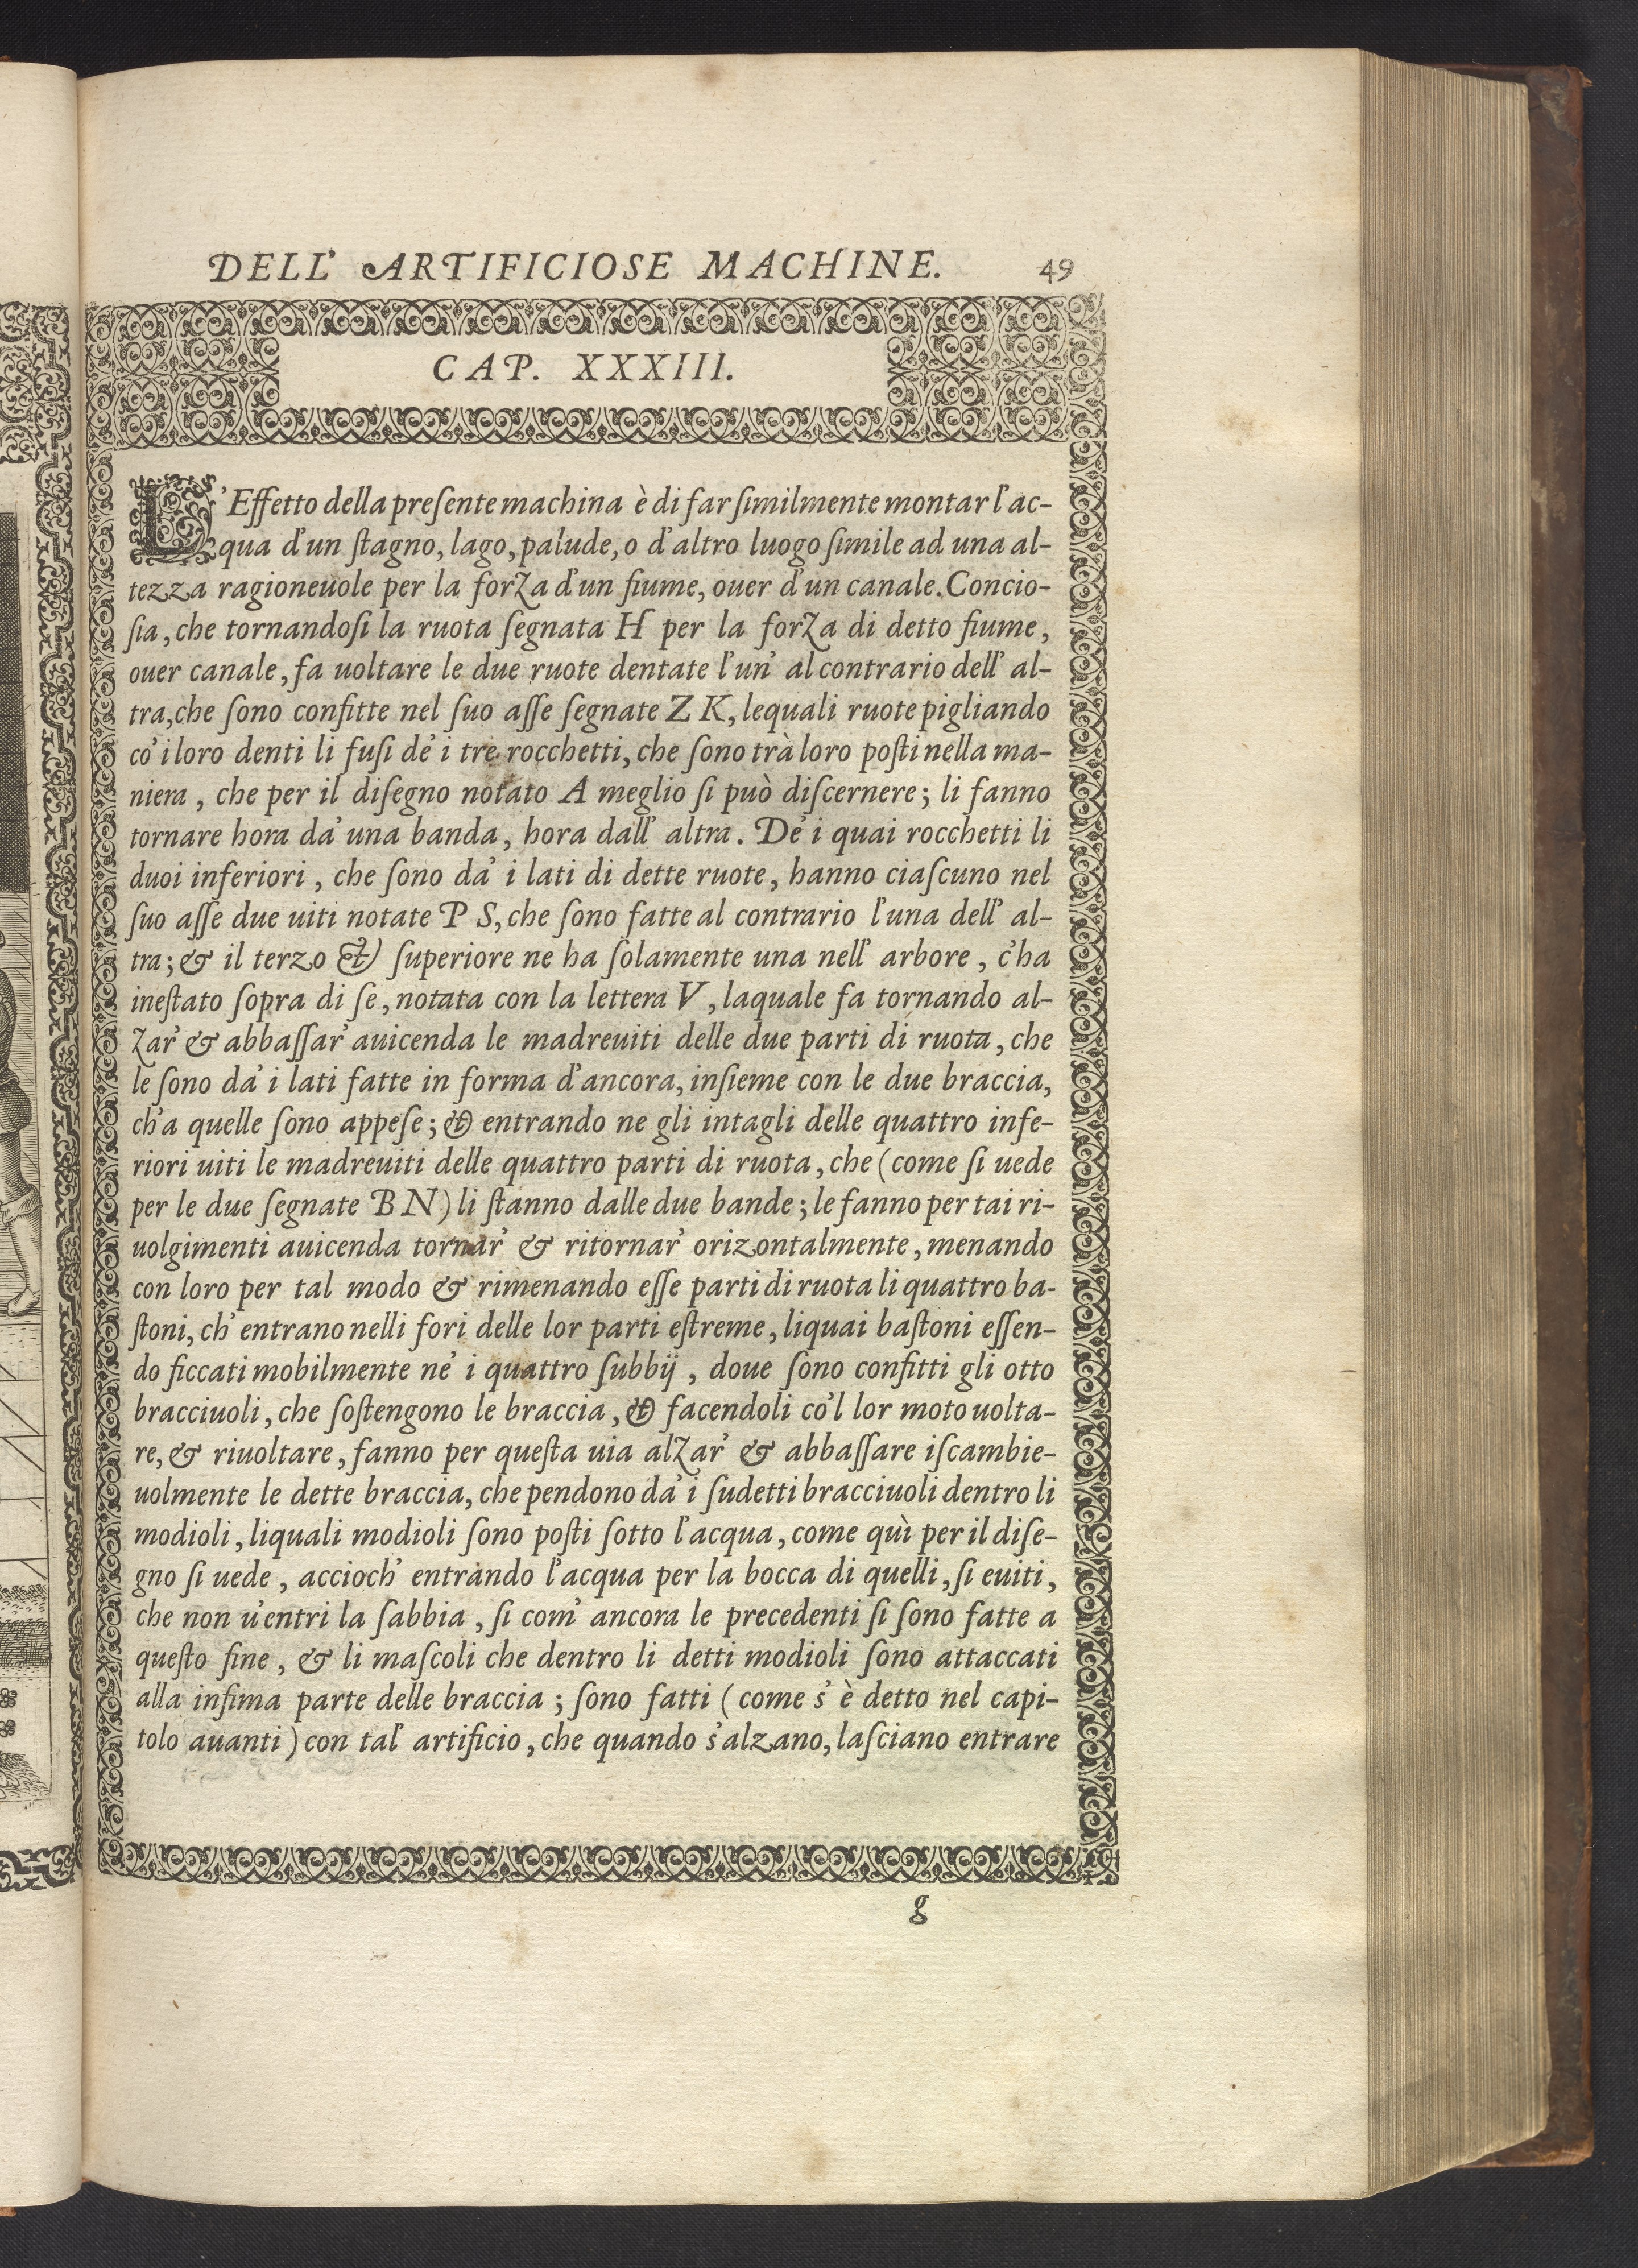 DELL' ARTIFICIOSE MACHINE. 49
CAP. XXXIII.
L'Effetto della preſente machina è di far ſimilmente montar l'ac-
qua d'un ſtagno, lago, palude, o d'altro luogo ſimile ad una al-
tezza ragioneuole per la forza d'un fiume, ouer d'un canale. Concio-
ſia, che tornandoſi la ruota ſegnata H per la forza di detto fiume,
ouer canale, fa uoltare le due ruote dentate l'un' al contrario dell' al-
tra, che ſono confitte nel ſuo aſſe ſegnate Z K, lequali ruote pigliando
co' i loro denti li fuſi de' i tre rocchetti, che ſono trà loro poſti nella ma-
niera, che per il diſegno notato A meglio ſi può diſcernere; li fanno
tornare hora da' una banda, hora dall' altra. De' i quai rocchetti li
duoi inferiori, che ſono da' i lati di dette ruote, hanno ciaſcuno nel
ſuo aſſe due uiti notate P S, che ſono fatte al contrario l'una dell' al-
tra; & il terzo & ſuperiore ne ha ſolamente una nell' arbore, c'ha
ineſtato ſopra di ſe, notata con la lettera V, laquale fa tornando al-
zar' & abbaſſar' auicenda le madreuiti delle due parti di ruota, che
le ſono da' i lati fatte in forma d'ancora, inſieme con le due braccia,
ch'a quelle ſono appeſe; & entrando ne gli intagli delle quattro infe-
riori uiti le madreuiti delle quattro parti di ruota, che (come ſi uede
per le due ſegnate B N) li ſtanno dalle due bande; le fanno per tai ri-
uolgimenti auicenda tornar' & ritornar' orizontalmente, menando
con loro per tal modo & rimenando eſſe parti di ruota li quattro ba-
ſtoni, ch' entrano nelli fori delle lor parti eſtreme, liquai baſtoni eſſen-
do ficcati mobilmente ne' i quattro ſubbij, doue ſono confitti gli otto
bracciuoli, che ſoſtengono le braccia, & facendoli co'l lor moto uolta-
re, & riuoltare, fanno per queſta uia alzar' & abbaſſare iſcambie-
uolmente le dette braccia, che pendono da' i ſudetti bracciuoli dentro li
modioli, liquali modioli ſono poſti ſotto l'acqua, come quì per il diſe-
gno ſi uede, accioch' entrando l'acqua per la bocca di quelli, ſi euiti,
che non u'entri la ſabbia, ſi com' ancora le precedenti ſi ſono fatte a
queſto fine, & li maſcoli che dentro li detti modioli ſono attaccati
alla infima parte delle braccia; ſono fatti (come s' è detto nel capi-
tolo auanti) con tal' artificio, che quando s'alzano, laſciano entrare
g